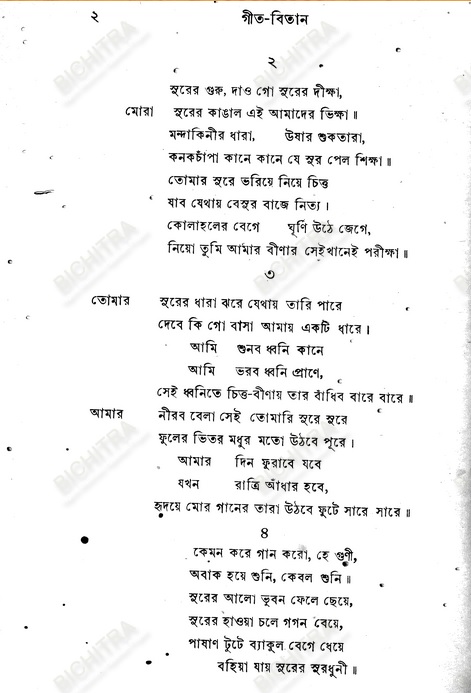 ২ গীত-বিতান
২
সুরের গুরু, দাও গো সুরের দীক্ষা,
মোরা সুরের কাঙাল এই আমাদের ভিক্ষা॥
মন্দাকিনীর ধারা, উষার শুকতারা,
কনকচাঁপা কানে কানে যে সুর পেল শিক্ষা॥
তোমার সুরে ভরিয়ে নিয়ে চিত্ত
যাব যেথায় বেসুর বাজে নিত্য।
কোলাহলের বেগে ঘূর্ণি উঠে জেগে,
নিয়ো তুমি আমার বীণার সেইখানেই পরীক্ষা॥
৩
তোমার সুরের ধারা ঝরে যেথায় তারি পারে
দেবে কি গো বাসা আমায় একটি ধারে।
আমি শুনব ধ্বনি কানে
আমি ভরব ধ্বনি প্রাণে,
সেই ধ্বনিতে চিত্ত-বীণায় তার বাঁধিব বারে বারে॥
আমার নীরব বেলা সেই তোমারি সুরে সুরে
ফুলের ভিতর মধুর মতো উঠবে পূরে।
আমার দিন ফুরাবে যবে
যখন রাত্রি আঁধার হবে,
হৃদয়ে মোর গানের তারা উঠবে ফুটে সারে সারে॥
৪
কেমন করে গান করো, হে গুণী,
অবাক হয়ে শুনি, কেবল শুনি॥
সুরের আলো ভুবন ফেলে ছেয়ে,
সুরের হাওয়া চলে গগন বেয়ে,
পাষাণ টুটে ব্যাকুল বেগে ধেয়ে
বহিয়া যায় সুরের সুরধুনী॥
BICHITRA